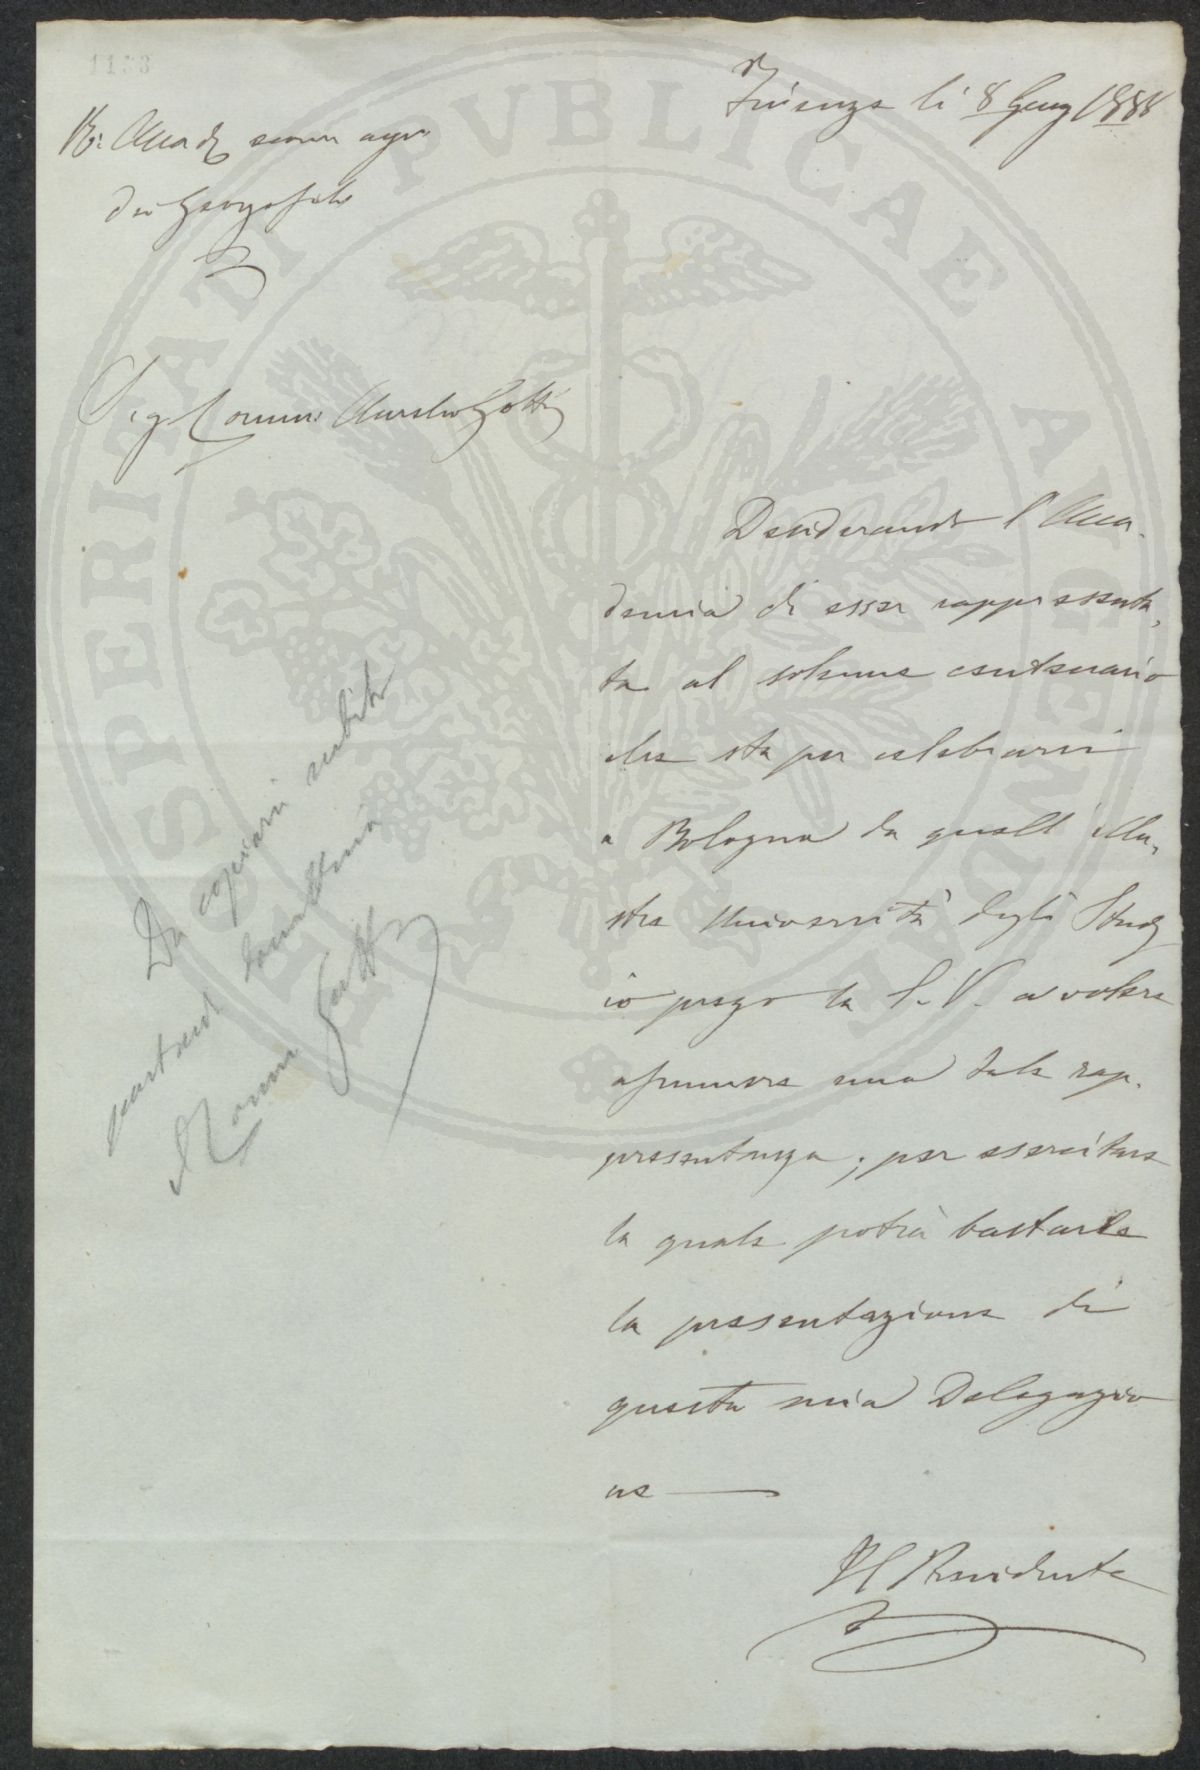 1153
Firenze li 8 Giug 1888
R: Accad econ agr:
dei Georgofili
Sig Comm: Aurelio Gotti
Desiderando l'Acca-
demia di esser rappresenta,
ta al solenne centenario
che sta per celebrarsi
a Bologna da quell' illu,
stre Università degli Studj
io prego la S. V. a volere
assumere una tale rap-
presentanza; per esercitare
la quale potrà bastarle
la presentazione di
questa mia Delegazio
ne
Il Presidente
Da copiarsi subito
partend domattina
il Comm Gotti
PROSPERITATI PVBLICAE AVGENDAE